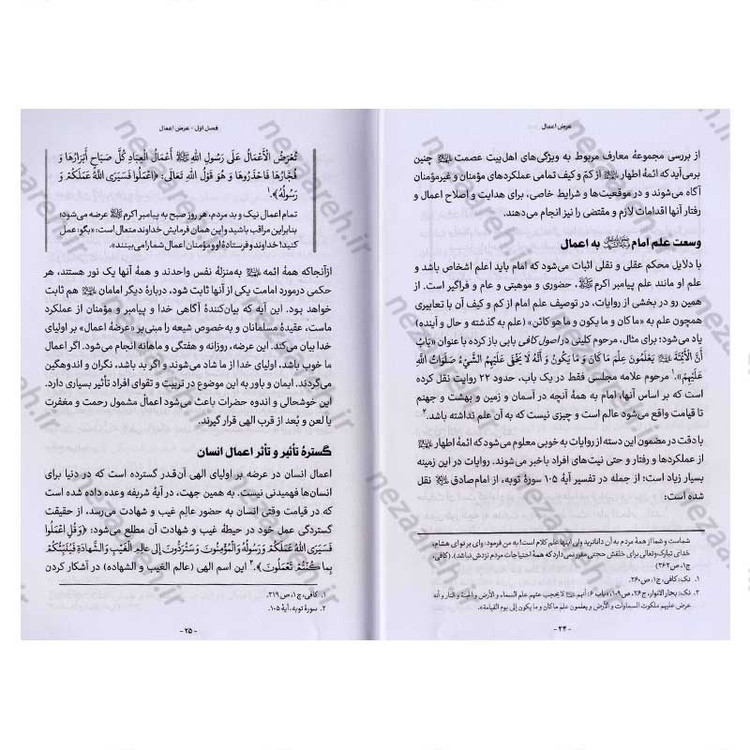 عرض اعمال
از بررسی مجموعهٔ معارف مربوط به ویژگی‌های اهل‌بیت عصمت چنین
برمی‌آید که ائمهٔ اطهار از کمّ و کیف تمامی عملکردهای مؤمنان و غیرمؤمنان
آگاه می‌شوند و در موقعیت‌ها و شرایط خاصی، برای هدایت و اصلاح اعمال و
رفتار آنها اقدامات لازم و مقتضی را نیز انجام می‌دهند.
وسعت علم امام به اعمال
با دلایل محکم عقلی و نقلی اثبات می‌شود که امام باید اعلم اشخاص باشد و
علم او مانند علم پیامبر اکرم، حضوری و موهبتی و عام و فراگیر است. از
همین رو در بخشی از روایات، در توصیف علم امام از کم و کیف آن با تعابیری
همچون علم به «ما کان و ما یکون و ما هو کائن» (علم به گذشته و حال و آینده)
یاد می‌شود؛ برای مثال، مرحوم کلینی در اصول کافی بابی باز کرده با عنوان «بَابُ
أَنَّ الْأَئِمَّةَ يَعْلَمُونَ عِلْمَ مَا كَانَ وَ مَا يَكُونُ وَ أَنَّهُ لَا يَخْفَى عَلَيْهِمُ الشَّيْءُ صَلَوَاتُ اللَّهِ
عَلَيْهِمْ».۱ مرحوم علامه مجلسی فقط در یک باب، حدود ۲۲ روایت نقل کرده
است که بر اساس آنها، امام به همهٔ آنچه در آسمان و زمین و بهشت و جهنم
تا قیامت واقع می‌شود عالم است و چیزی نیست که به آن علم نداشته باشد.۲
با دقت در مضمون این دسته از روایات به خوبی معلوم می‌شود که ائمهٔ اطهار
از عملکردها و رفتار و حتی نیت‌های افراد باخبر می‌شوند. روایات در این زمینه
بسیار زیاد است؛ از جمله در تفسیر آیهٔ ۱۰۵ سورهٔ توبه، از امام‌صادق نقل
شده است:
شماست و شما از همهٔ مردم به آن داناترید ولی اینها علم کلام است! به من فرمود: وای بر تو ای هشام،
خدای تبارک‌وتعالی برای خلقش حجتی مقرر نمی دارد که همهٔ احتیاجات مردم نزدش نباشد). (کافی،
ج۱، ص۲۶۲)
۱. نک: کافی، ج۱، ص۲۶۰.
۲. نک: بحارالانوار، ج۲۶، ص۱۰۹، «باب ۶: أنهم لا يحجب عنهم علم السماء و الأرض و الجنة و النار و أنه
عرض عليهم ملكوت السماوات و الأرض و يعلمون علم ما كان و ما يكون إلى يوم القيامة».
- ۲۴ -
فصل اول - عرض اعمال
تُعْرَضُ الْأَعْمَالُ عَلَى رَسُولِ اللَّهِ أَعْمَالُ الْعِبَادِ كُلَّ صَبَاحٍ أَبْرَارُهَا وَ
فُجَّارُهَا فَاحْذَرُوهَا وَ هُوَ قَوْلُ اللَّهِ تَعَالَى: ﴿اعْمَلُوا فَسَيَرَى اللَّهُ عَمَلَكُمْ وَ
رَسُولُهُ﴾.۱
تمام اعمال نیک و بد مردم، هر روز صبح به پیامبر اکرم عرضه می‌شود؛
بنابراین مراقب باشید و این همان فرمایش خداوند متعال است: «بگو: عمل
کنید! خداوند و فرستادهٔ او و مؤمنان اعمال شما را می‌بینند».
ازآنجاکه همهٔ ائمه به‌منزلهٔ نفس واحدند و همهٔ آنها یک نور هستند، هر
حکمی درمورد امامت یکی از آنها ثابت شود، دربارهٔ دیگر امامان هم ثابت
خواهد بود. این آیه که بیان‌کنندهٔ آگاهی خدا و پیامبر و مؤمنان از عملکرد
ماست، عقیدهٔ مسلمانان و به‌خصوص شیعه را مبنی‌بر «عرضهٔ اعمال» بر اولیای
خدا بیان می‌کند. این عرضه، روزانه و هفتگی و ماهانه انجام می‌شود. اگر اعمال
ما خوب باشد، اولیای خدا از ما شاد می‌شوند و اگر بد باشد، نگران و اندوهگین
می‌گردند. ایمان و باور به این موضوع در تربیت و تقوای افراد تأثیر بسیاری دارد.
این خوشحالی و اندوه حضرات باعث می‌شود اعمال مشمول رحمت و مغفرت
یا لعن و بُعد از قرب الهی قرار گیرند.
گسترهٔ تأثیر و تأثر اعمال انسان
اعمال انسان در عرضه بر اولیای الهی آن‌قدر گسترده است که در دنیا برای
انسان‌ها فهمیدنی نیست. به همین جهت، در آیهٔ شریفه وعده داده شده است
که در قیامت وقتی انسان به حضور عالِم غیب و شهادت می‌رسد، از حقیقت
گستردگی عمل خود در حیطهٔ غیب و شهادت آن مطلع می‌شود: ﴿وَقُلِ اعْمَلُوا
فَسَيَرَى اللَّهُ عَمَلَكُمْ وَرَسُولُهُ وَالْمُؤْمِنُونَ وَسَتُرَدُّونَ إِلَى عَالِمِ الْغَيْبِ وَالشَّهَادَةِ فَيُنَبِّئُكُمْ
بِمَا كُنْتُمْ تَعْمَلُونَ﴾.۲ این اسم الهی (عالم الغیب و الشهاده) در آشکار کردن
۱. کافی، ج۱، ص۲۱۹.
۲. سورهٔ توبه، آیهٔ ۱۰۵.
- ۲۵ -
nezareh.ir